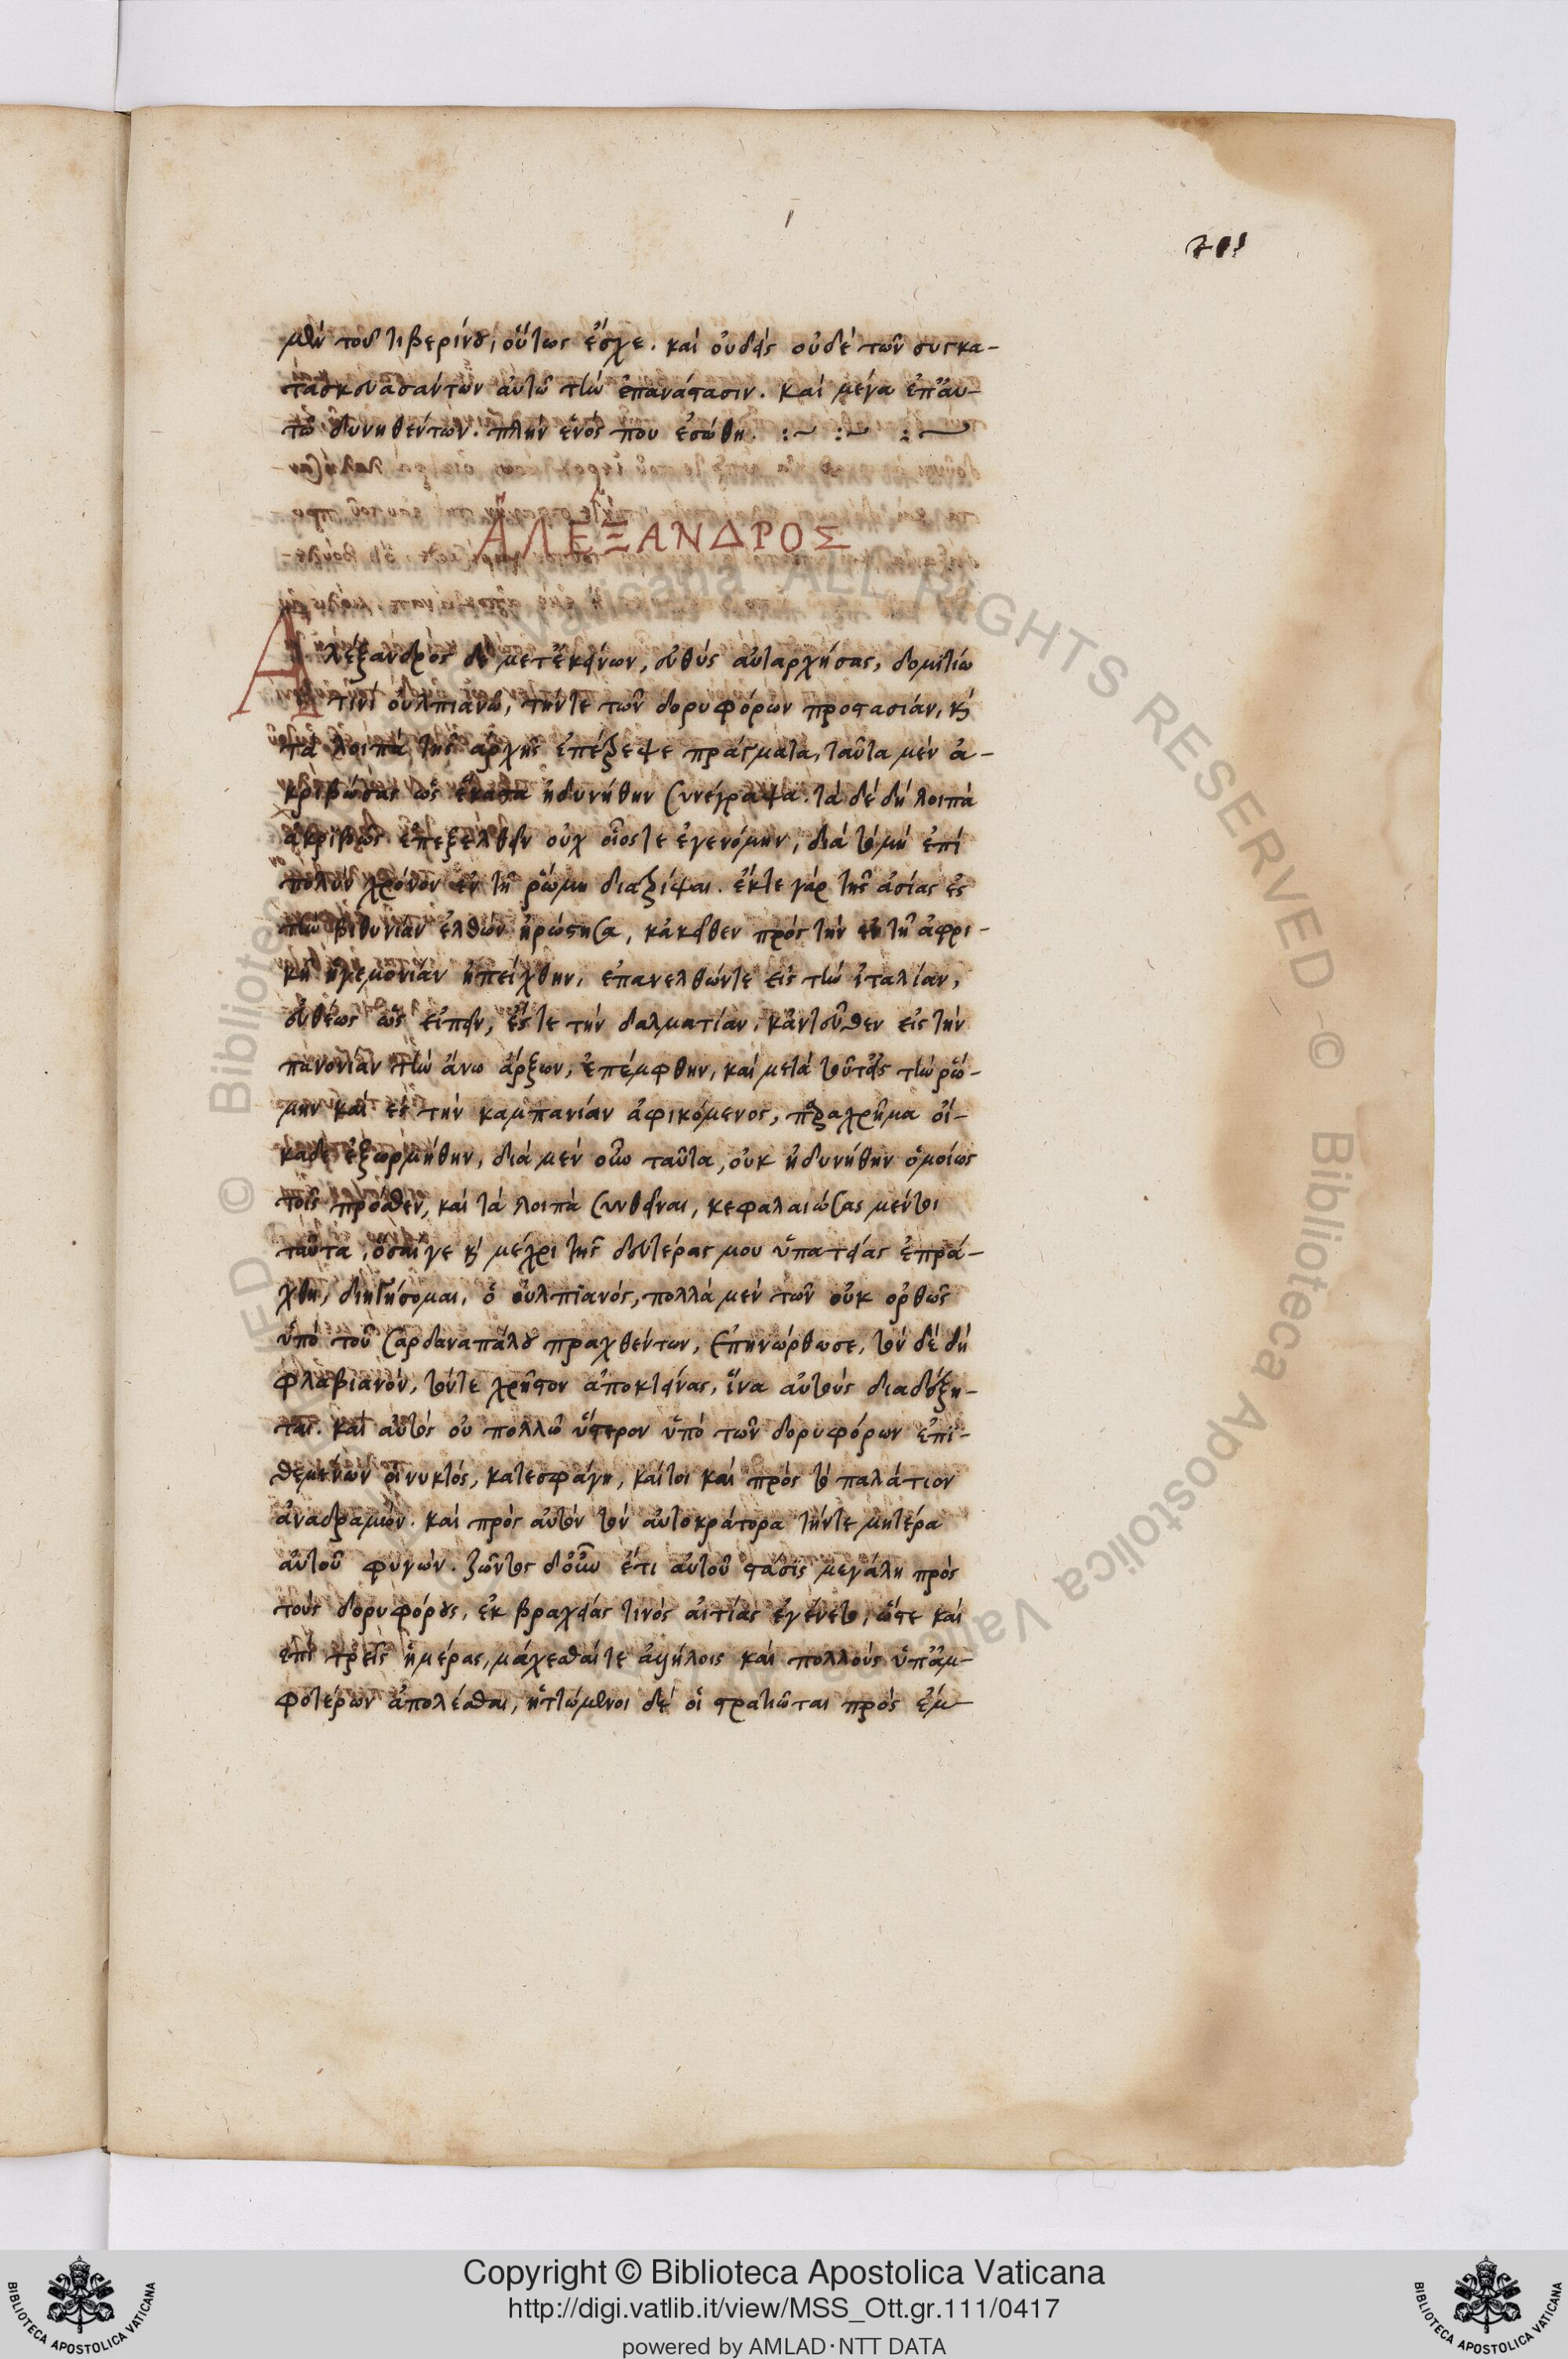 201
μὲν τοῦ τιβερίνου, οὕτως ἔσχε. καὶ οὐδεὶς οὐδὲ τῶν συγκα-
τασκευασάντων αὐτῶ τὴν ἐπανάστασιν. καὶ μέγα ἐπ' αὐ-
τῶ δυνηθέντων. πλὴν ἑνός που ἐσώθη. :~ :~ :~
ἈΛΈΞΑΝΔΡΟΣ
Ἀλέξανδρος δὲ μετ' ἐκείνων, εὐθὺς αὐταρχήσας, δομιτίω
τινὶ οὐλπιανῶ, τήν τε τῶν δορυφόρων προστασίαν, καὶ
τὰ λοιπὰ τῆς ἀρχῆς ἐπέτρεψε πράγματα, ταῦτα μὲν ἀ-
κριβώσας ὡς ἕκαστα ἠδυνήθην συνέγραψα. τὰ δὲ δὴ λοιπὰ
ἀκριβῶς ἐπεξελθεῖν οὐχ οἷός τε ἐγενόμην, διὰ τὸ μὴ ἐπὶ
πολὺν χρόνον ἐν τῆ ῥώμη διατρίψαι. ἔκ τε γὰρ τῆς ἀσίας ἐς
τὴν βιθυνίαν ἐλθὼν ἠρώστησα, κἀκεῖθεν πρὸς τὴν ἐν τῆ ἀφρι-
κῆ ἡγεμονίαν ἠπείχθην, ἐπανελθών τε εἰς τὴν ἰταλίαν,
εὐθέως ὡς εἰπεῖν, ἔς τε τὴν δαλματίαν, κἀντεῦθεν εἰς τὴν
πανονίαν τὴν ἄνω ἄρξων, ἐπέμφθην, καὶ μετὰ τοῦτ' εἰς τὴν ῥώ-
μην καὶ ἐς τὴν καμπανίαν ἀφικόμενος, παραχρῆμα οἴ-
καδε ἐξωρμήθην, διὰ μὲν οὖν ταῦτα, οὐκ ἠδυνήθην ὁμοίως
τοῖς πρόσθεν, καὶ τὰ λοιπὰ συνθεῖναι, κεφαλαιώσας μέντοι
ταῦτα, ὅσα γε καὶ μέχρι τῆς δευτέρας μου ὑπατείας ἐπρά-
χθη, διηγήσομαι, ὁ οὐλπιανός, πολλὰ μὲν τῶν οὐκ ὀρθῶς
ὑπὸ τοῦ σαρδαναπάλου πραχθέντων, ἐπηνώρθωσε, τὸν δὲ δὴ
φλαβιανόν, τόν τε χρῆστον ἀποκτείνας, ἵνα αὐτοὺς διαδέξη-
ται. καὶ αὐτὸς οὐ πολλῶ ὕστερον ὑπὸ τῶν δορυφόρων ἐπι-
θεμένων οἱ νυκτός, κατεσφάγη, καίτοι καὶ πρὸς τὸ παλάτιον
ἀναδραμών. καὶ πρὸς αὐτὸν τὸν αὐτοκράτορα τήν τε μητέρα
αὐτοῦ φυγών. ζῶντος δ' οὖν ἔτι αὐτοῦ στάσις μεγάλη πρὸς
τοὺς δορυφόρους, ἐκ βραχείας τινὸς αἰτίας ἐγένετο, ὥστε καὶ
ἐπὶ τρεῖς ἡμέρας, μάχεσθαί τε ἀλλήλοις καὶ πολλοὺς ὑπ' ἀμ-
φοτέρων ἀπολέσθαι, ἡττώμενοι δὲ οἱ στρατιῶται πρὸς ἔμ-
© Biblioteca Apostolica Vaticana ALL RIGHTS RESERVED © Biblioteca Apostolica Vaticana ALL RIGHTS RESERVED
BIBLIOTECA APOSTOLICA VATICANA
Copyright © Biblioteca Apostolica Vaticana
http://digi.vatlib.it/view/MSS_Ott.gr.111/0417
powered by AMLAD·NTT DATA
BIBLIOTECA APOSTOLICA VATICANA